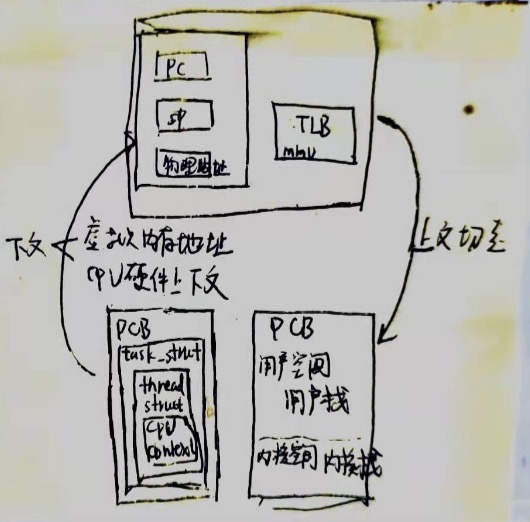 PC
sp
物理地址
TLB
mmu
下文
虚拟内存地址
CPU硬件上下文
上文切走
PCB
task_struct
thread
struct
CPU
context
PCB
用户空间
用户栈
内核空间 内核栈